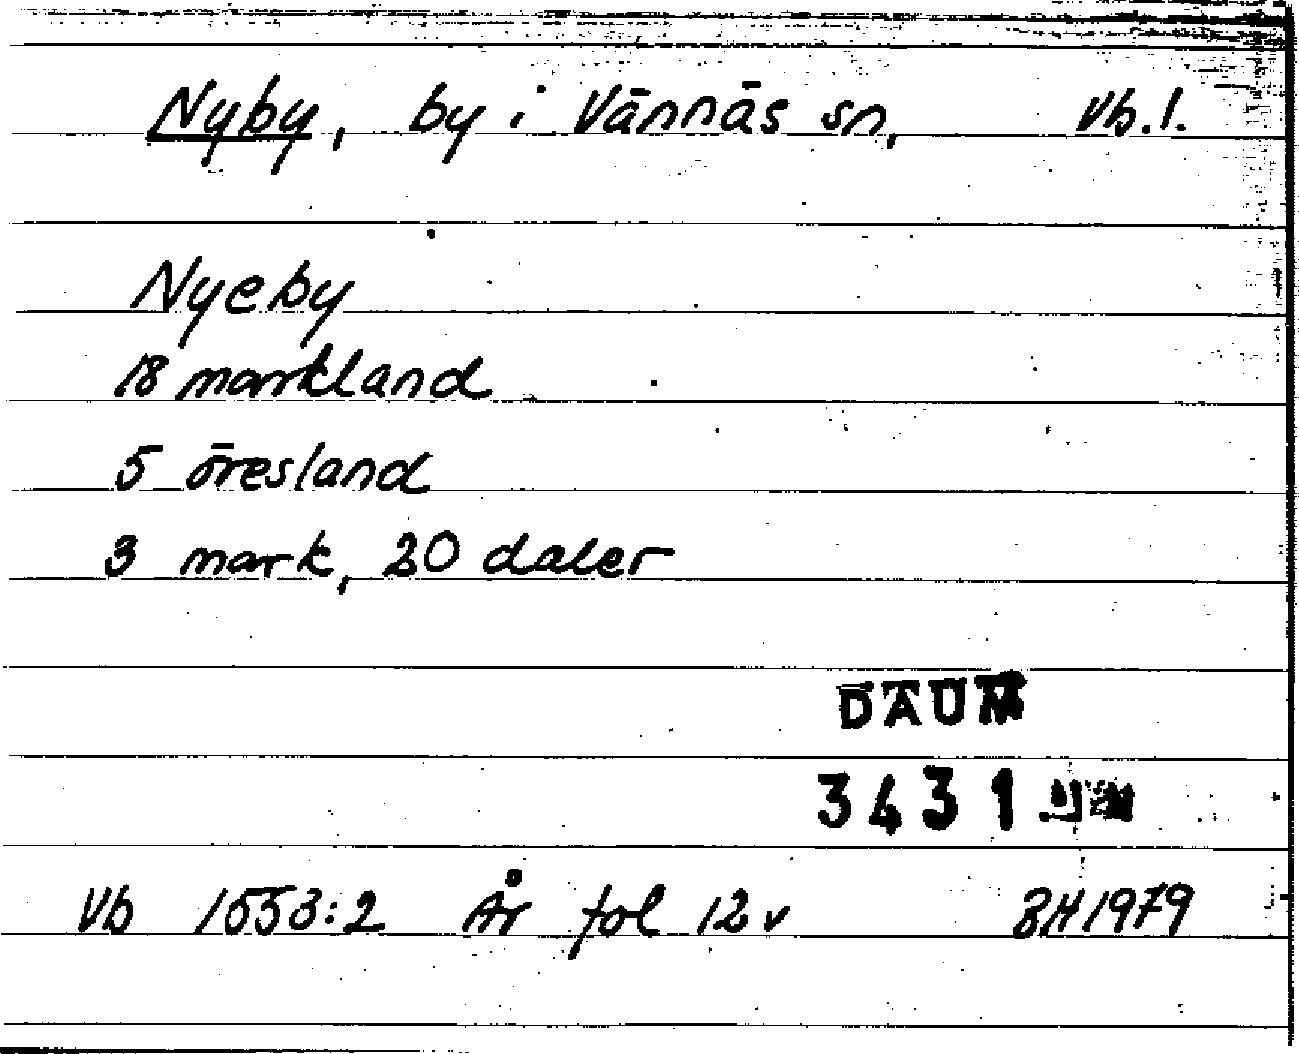 Nyby, by i Vännäs sn, Vb.l.
Nyeby
18 markland
5 öresland
3 mark, 20 daler
DAUM
3431
Vb 1553:2 År fol 12v BH 1979